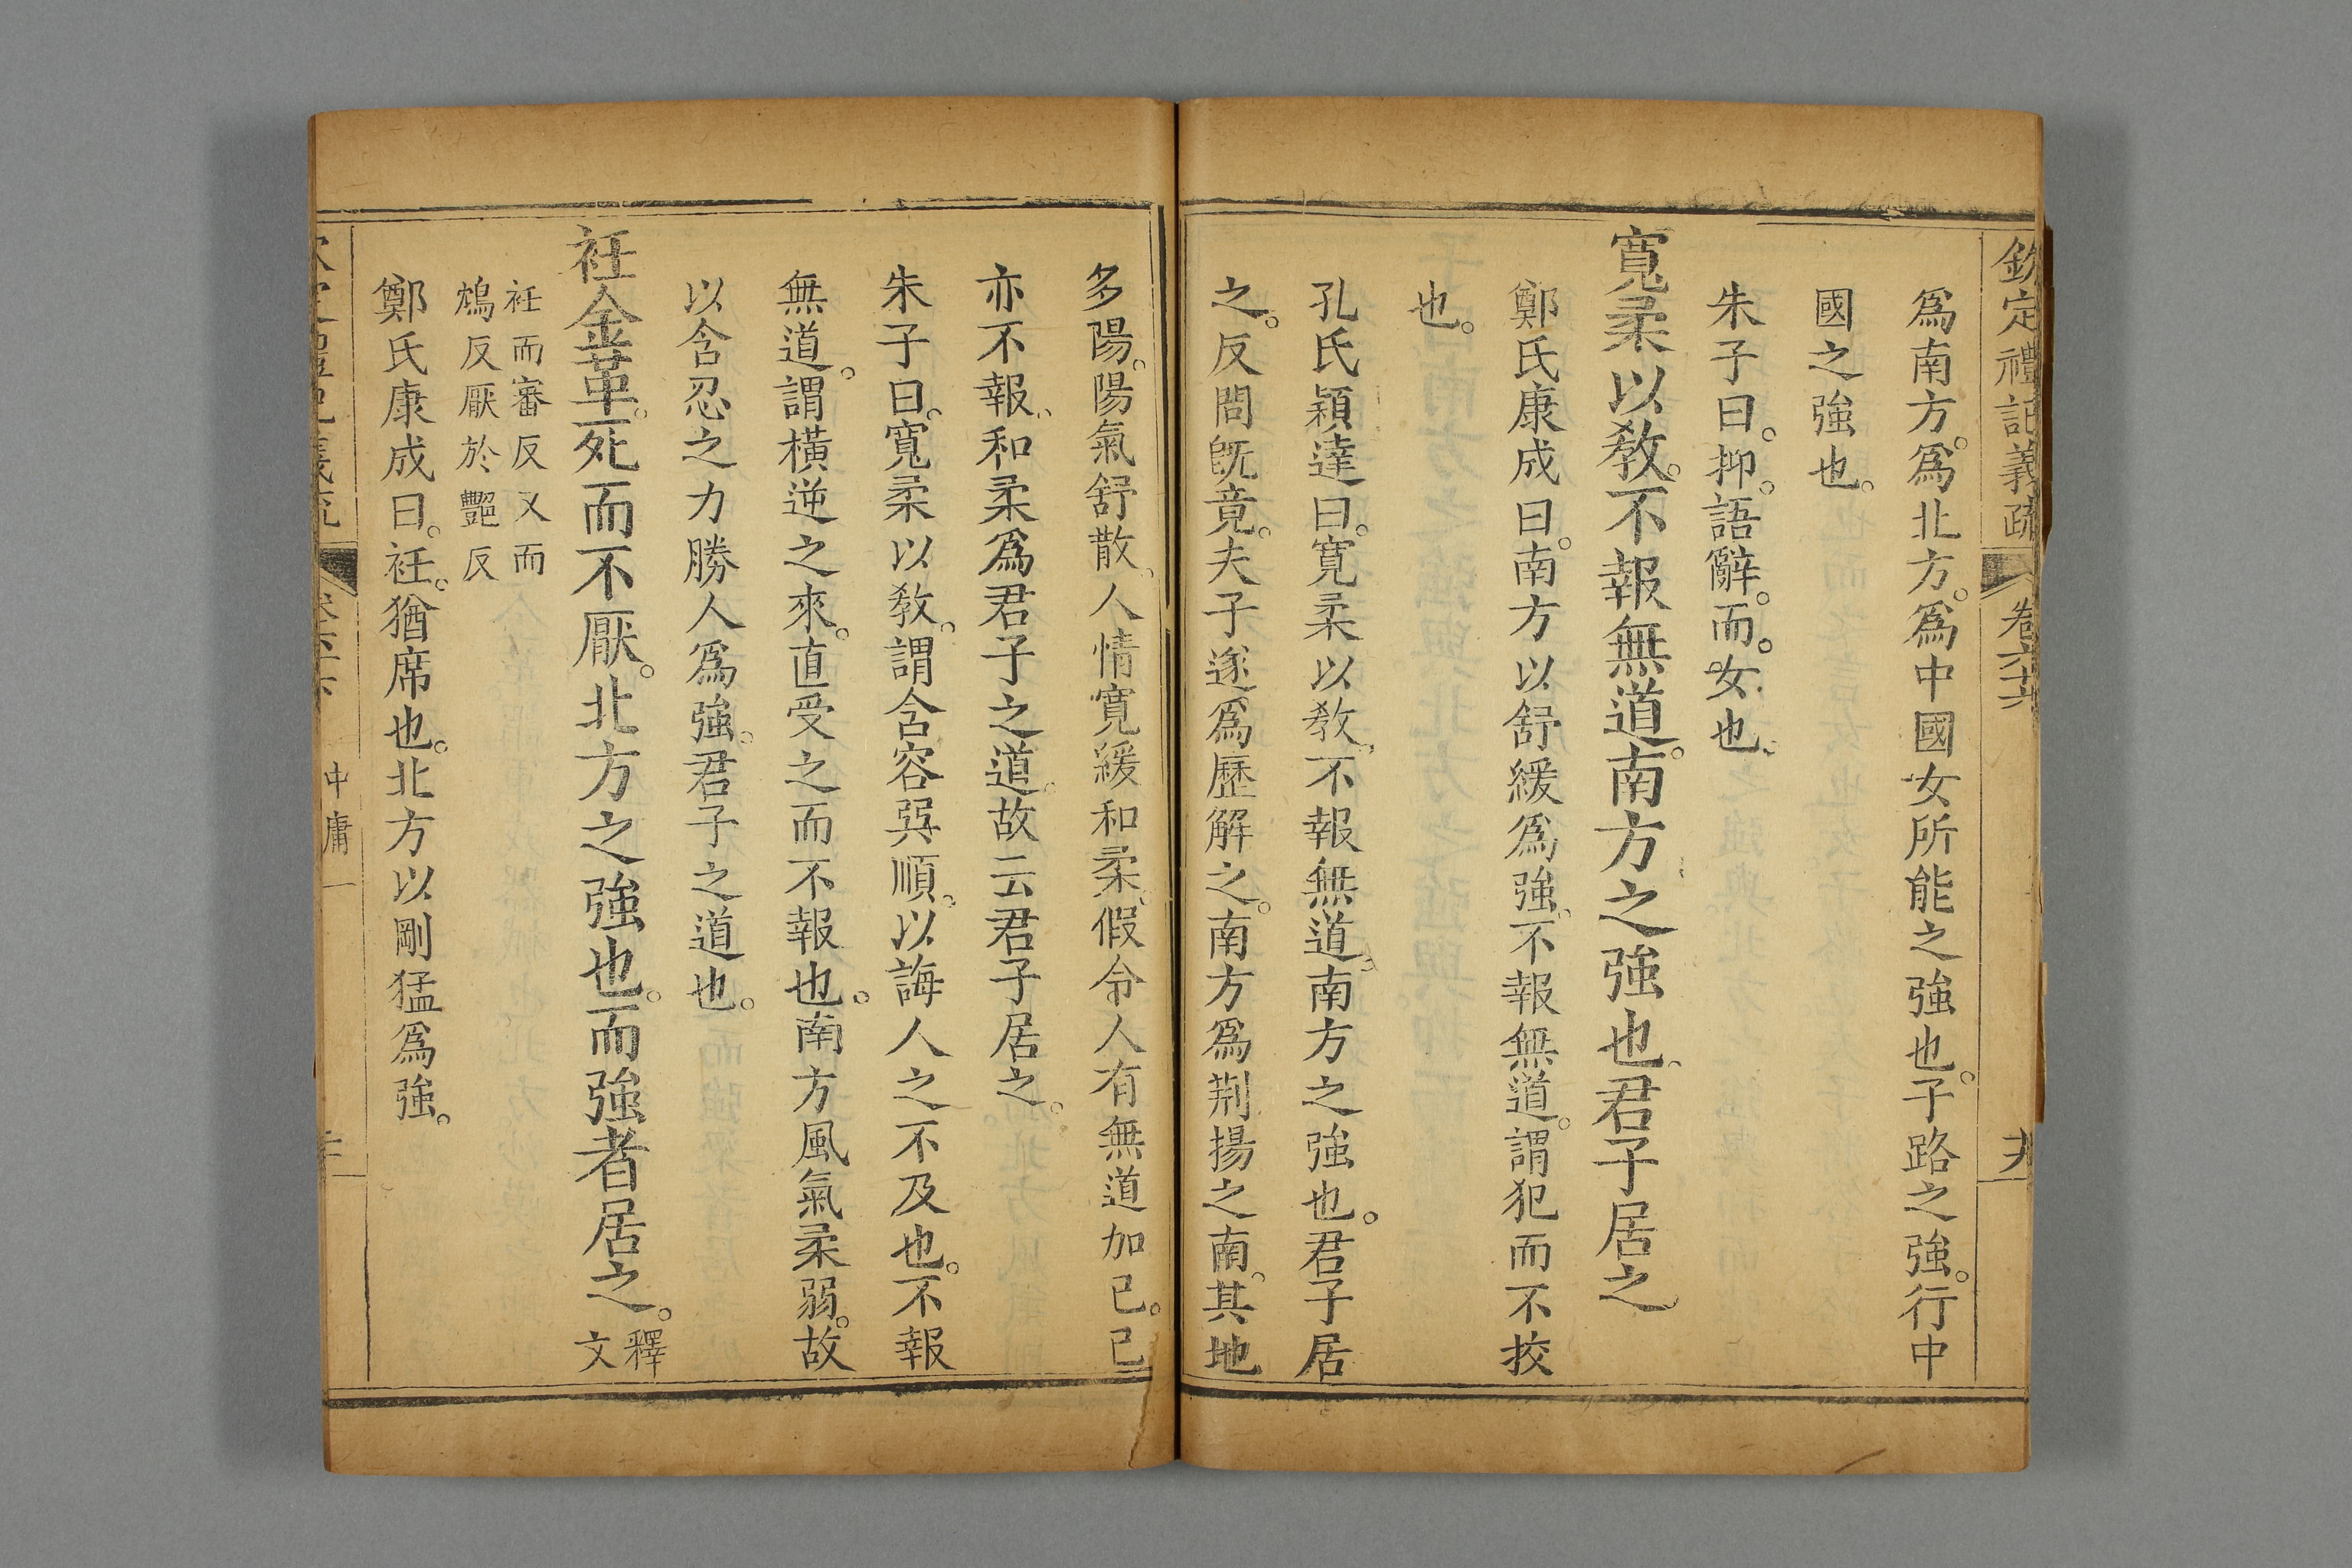 欽定禮記義疏 卷六十六 九
爲南方。爲北方。爲中國女所能之強也。子路之強。行中
國之強也。
朱子曰。抑。語辭。而。女也。
寬柔以教。不報無道。南方之強也。君子居之
鄭氏康成曰。南方以舒緩爲強。不報無道。謂犯而不挍
也。
孔氏穎達曰。寬柔以教。不報無道。南方之強也。君子居
之。反問旣竟。夫子遂爲歷解之。南方爲荆揚之南。其地
多陽。陽氣舒散。人情寬緩和柔。假令人有無道加已。已
亦不報。和柔爲君子之道。故云君子居之。
朱子曰。寬柔以教。謂含容巽順。以誨人之不及也。不報
無道。謂橫逆之來。直受之而不報也。南方風氣柔弱。故
以含忍之力勝人爲強。君子之道也。
衽金革。死而不厭。北方之強也。而強者居之。釋文
衽而審反又而
鴆反厭於豔反
鄭氏康成曰。衽。猶席也。北方以剛猛爲強。
中庸一